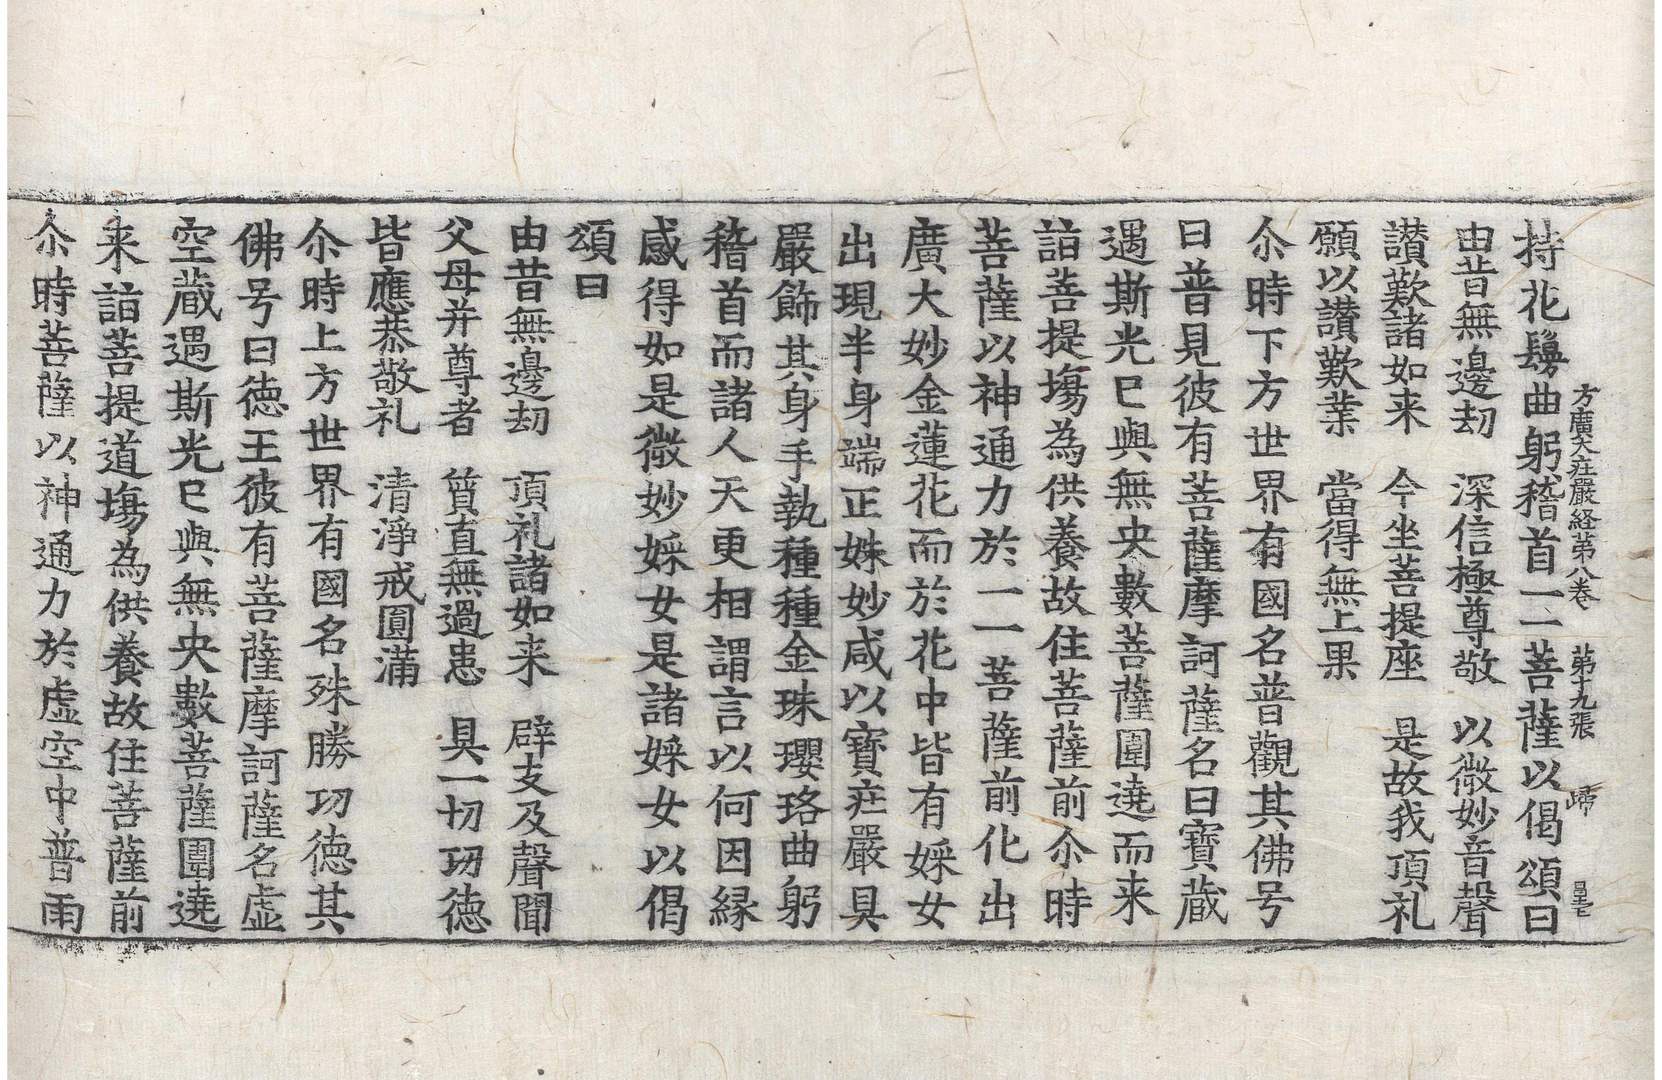 方廣大庄嚴経第八卷　第十九張　歸
持花鬘曲躬稽首一一菩薩以偈頌曰
由昔無邊劫　深信極尊敬　以微妙音聲
讃歎諸如来　今坐菩提座　是故我頂礼
願以讃歎業　當得無上果
尒時下方世界有國名普觀其佛号
曰普見彼有菩薩摩訶薩名曰寶蔵
遇斯光已與無央數菩薩圍遶而来
詣菩提塲為供養故住菩薩前尒時
菩薩以神通力於一一菩薩前化出
廣大妙金蓮花而於花中皆有婇女
出現半身端正姝妙咸以寶庄嚴具
嚴飾其身手執種種金珠瓔珞曲躬
稽首而諸人天更相謂言以何因縁
感得如是微妙婇女是諸婇女以偈
頌曰
由昔無邊劫　頂礼諸如来　辟支及聲聞
父母并尊者　質直無過患　具一切功德
皆應恭敬礼　清淨戒圓滿
尒時上方世界有國名殊勝功德其
佛号曰徳王彼有菩薩摩訶薩名虚
空蔵遇斯光已與無央數菩薩圍遶
来詣菩提道塲為供養故住菩薩前
尒時菩薩以神通力於虚空中普雨